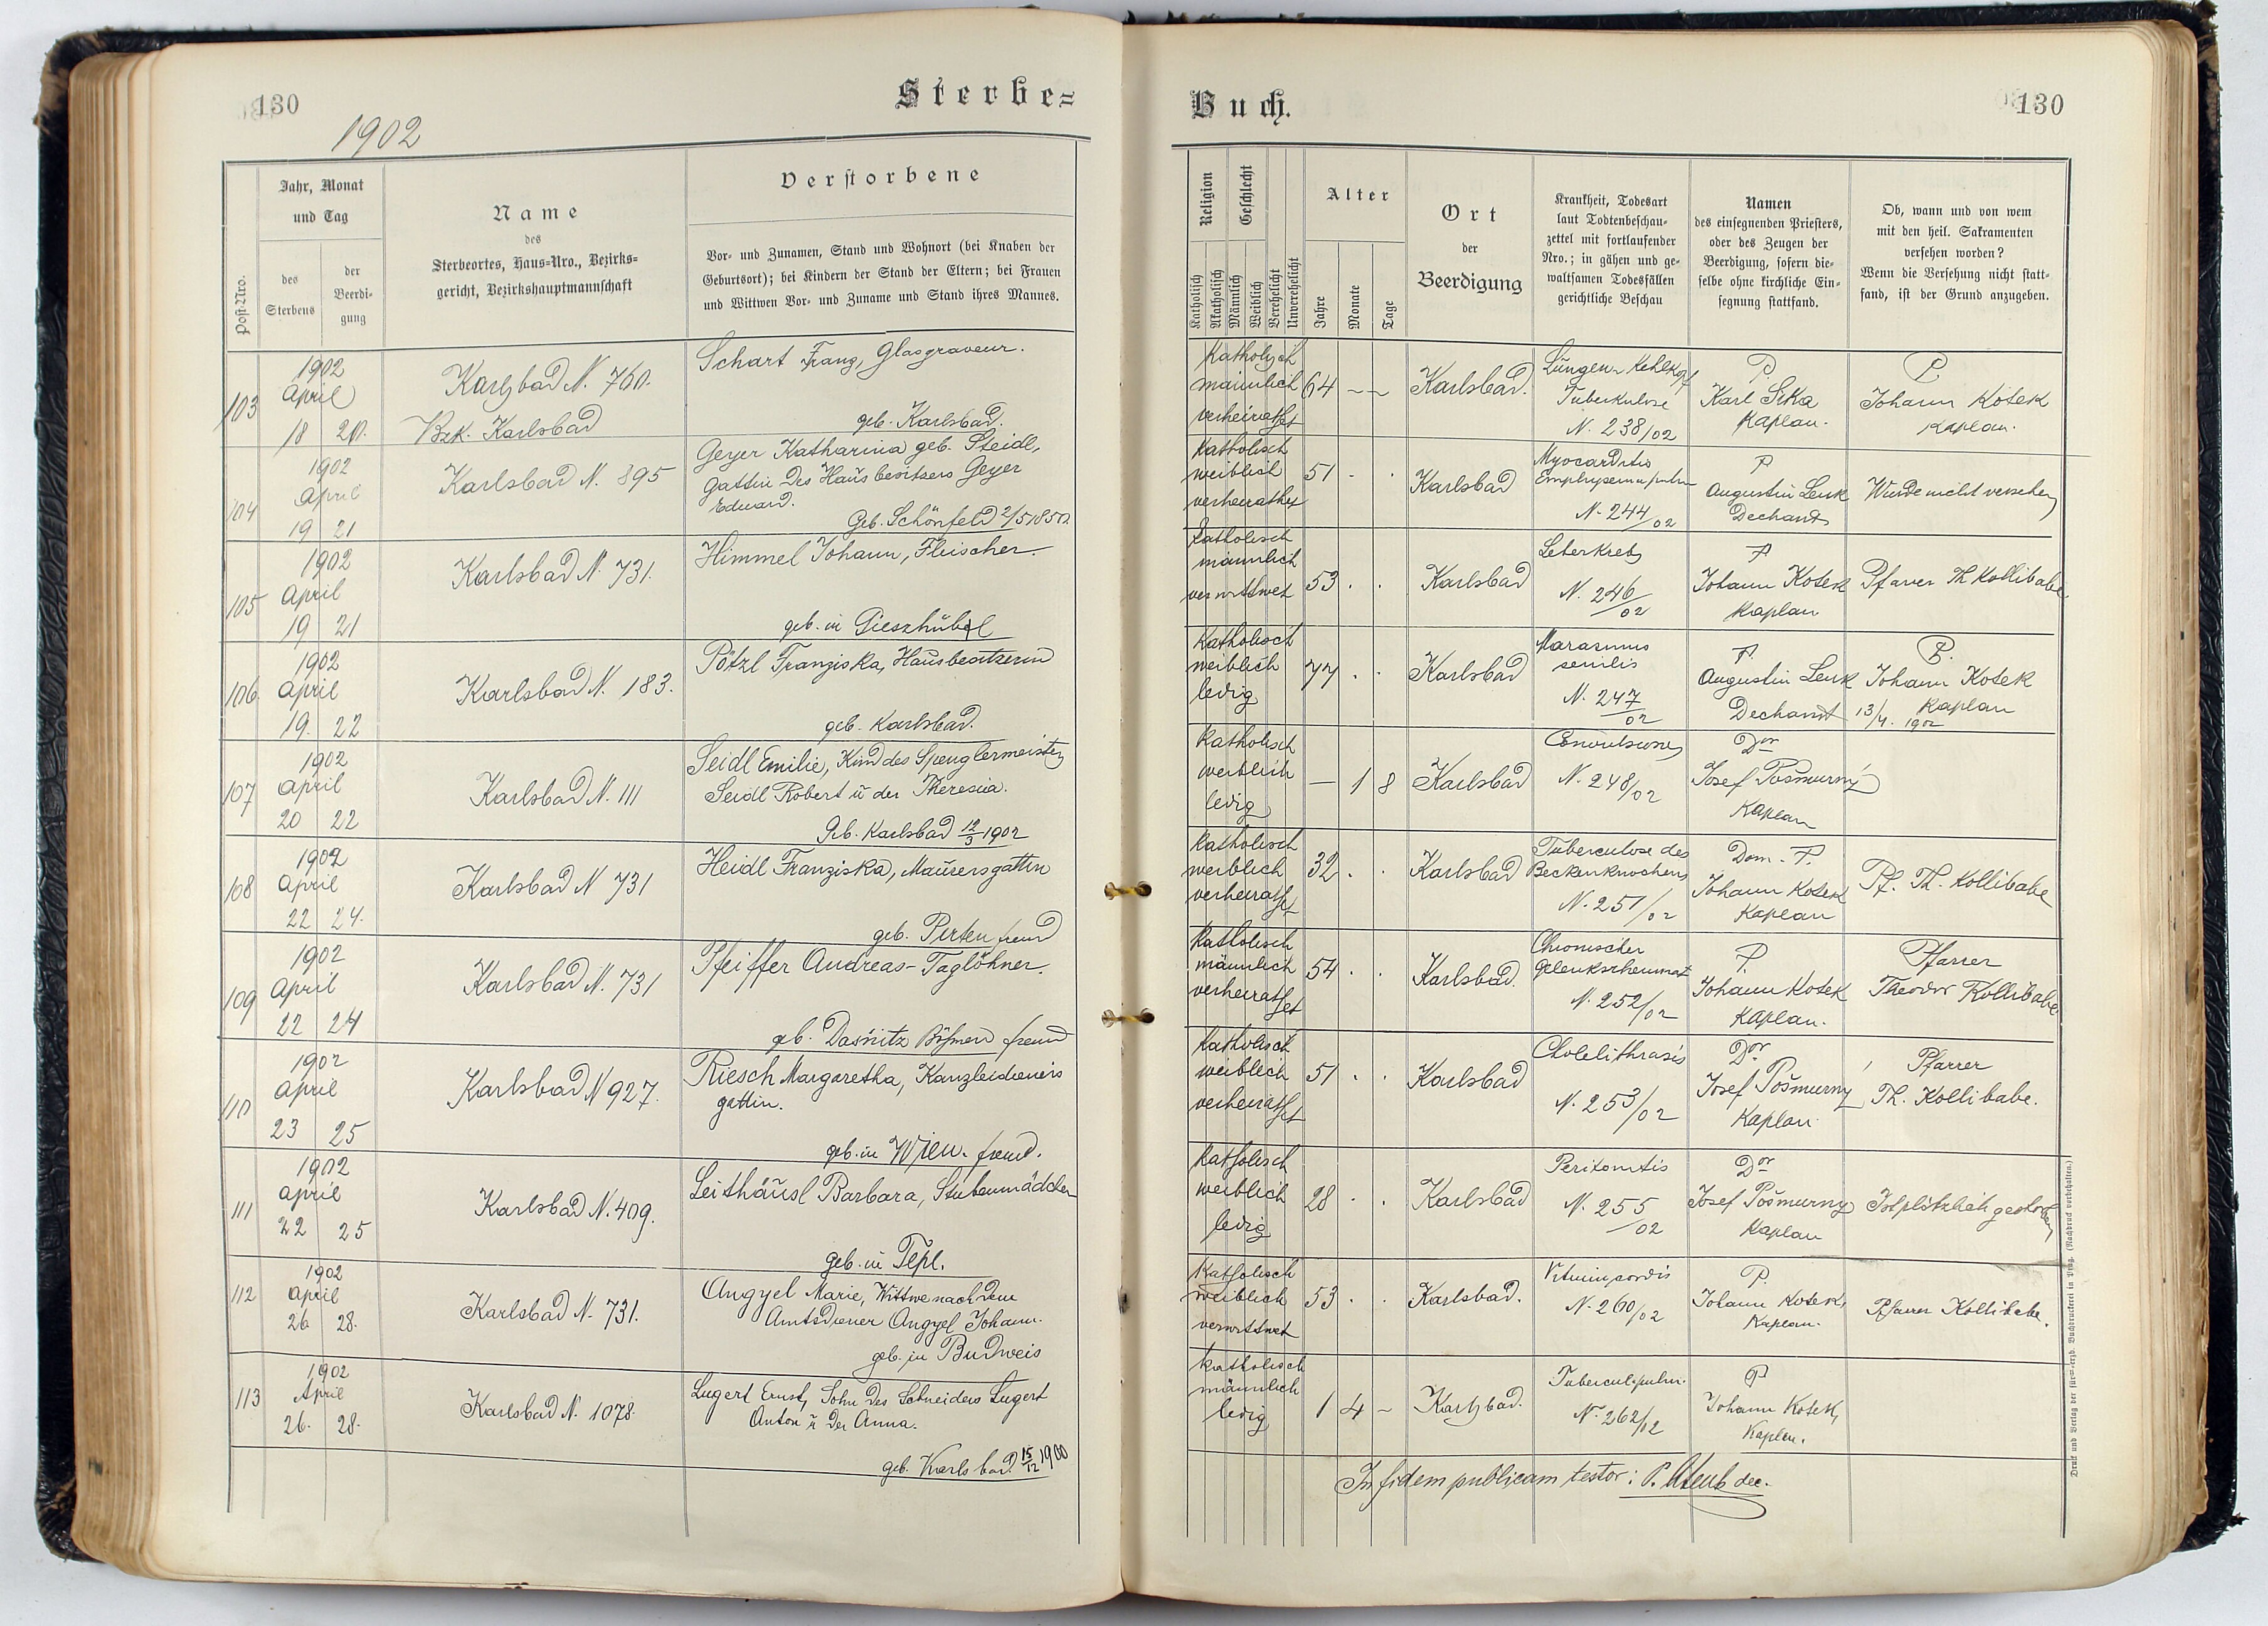 130
Sterbe=
1902
Post-Nro.
Jahr, Monat
und Tag
des
Sterbens
der
Beerdi-
gung
Name
des
Sterbeortes, Haus-Nro., Bezirks-
gericht, Bezirkshauptmannschaft
Verstorbene
Vor- und Zunamen, Stand und Wohnort (bei Knaben der
Geburtsort); bei Kindern der Stand der Eltern; bei Frauen
und Wittwen Vor- und Zuname und Stand ihres Mannes.
103
1902
April
18 20.
Karlsbad N. 760.
Bzk. Karlsbad
Schart Franz, Glasgraveur.
geb. Karlsbad.
104
1902
April
19 21
Karlsbad N. 895
Geyer Katharina geb. Steidl,
Gattin des Hausbesitzers Geyer
Eduard.
Geb. Schönfeld 2/5 1850
105
1902
April
19 21
Karlsbad N. 731.
Himmel Johann, Fleischer.
geb. in Gieszhübel
106
1902
April
19. 22
Karlsbad N. 183.
Pötzl Franziska, Hausbesitzerin
geb. Karlsbad.
107
1902
April
20 22
Karlsbad N. 111
Seidl Emilie, Kind des Spenglermeisters
Seidl Robert u der Theresia.
Geb. Karlsbad 12/3 1902
108
1902
April
22 24.
Karlsbad N 731
Heidl Franziska, Maurersgattin
geb. Pirten fremd
109
1902
April
22 24
Karlsbad N. 731
Pfeiffer Andreas - Taglöhner.
geb. Dasnitz Böhmen fremd
110
1902
April
23 25
Karlsbad N 927.
Riesch Margaretha, Kanzleidieners
gattin.
geb. in Wien. fremd.
111
1902
April
22 25
Karlsbad N. 409.
Leithäusl Barbara, Stubenmädchen
geb. in Tepl.
112
1902
April
26 28.
Karlsbad N. 731.
Angyel Marie, Wittwe nach dem
Amtsdiener Angyel Johann.
geb. in Budweis
113
1902
April
26. 28.
Karlsbad N. 1078.
Lugert Ernst, Sohn des Schneiders Lugert
Anton u der Anna.
geb. Karlsbad 15/12 1900
Buch.
130
Religion
Geschlecht
Katholisch
Akatholisch
Männlich
Weiblich
Verehelicht
Unverehelicht
Alter
Jahre
Monate
Tage
Ort
der
Beerdigung
Krankheit, Todesart
laut Todtenbeschau-
zettel mit fortlaufender
Nro.; in gähen und ge-
waltsamen Todesfällen
gerichtliche Beschau
Namen
des einsegnenden Priesters,
oder des Zeugen der
Beerdigung, sofern die-
selbe ohne kirchliche Ein-
segnung stattfand.
Ob, wann und von wem
mit den heil. Sakramenten
versehen worden?
Wenn die Versehung nicht statt-
fand, ist der Grund anzugeben.
Katholisch
männlich
verheirathet
64 - -
Karlsbad.
Lungen u Kehlkopf
Tuberkulose
N. 238/02
P.
Karl Sika
Kaplan.
P.
Johann Kotek
Kaplan.
Katholisch
weiblich
verheirathet
51 . .
Karlsbad
Myocarditis
Emphysema pulm
N. 244/02
P
Augustin Lenk
Dechant
Wurde nicht versehen
Katholisch
männlich
verwittwet
53 . .
Karlsbad
Leberkrebs
N. 246/02
P
Johann Kotek
Kaplan
Pfarrer Th Kollibabe.
Katholisch
weiblich
ledig
77 . .
Karlsbad
Marasmus
senilis
N. 247/02
P.
Augustin Lenk
Dechant
P.
Johann Kotek
Kaplan
13/4. 1902
Katholisch
weiblich
ledig
— 1 8
Karlsbad
Convulsiones
N. 248/02
Dor
Josef Pošmurný
Kaplan
Katholisch
weiblich
verheirathet
32 . .
Karlsbad
Tuberculose des
Beckenknochens
N. 251/02
Dom. P.
Johann Kotek
Kaplan
Pf. Th. Kollibabe
Katholisch
männlich
verheirathet
54 . .
Karlsbad.
Chronischer
Gelenksrheumat
N. 252/02
P.
Johann Kotek
Kaplan.
Pfarrer
Theodor Kollibabe
Katholisch
weiblich
verheirathet
51 . .
Karlsbad
Cholelithiasis
N. 253/02
Dor
Josef Pošmurný
Kaplan
Pfarrer
Th. Kollibabe.
Katholisch
weiblich
ledig
28 . .
Karlsbad
Peritonitis
N. 255/02
Dor
Josef Pošmurný
Kaplan
Ist plötzlich gestorben
Katholisch
weiblich
verwittwet
53 . .
Karlsbad.
Vitium cordis
N. 260/02
P.
Johann Kotek,
Kaplan.
Pfarrer Kollibabe.
Katholisch
männlich
ledig
1 4 -
Karlsbad.
Tubercul. pulm.
N. 262/02
P
Johann Kotek,
Kaplan.
In fidem publicam testor: P. A Lenk dec.
Druck und Verlag der fürst-erzb. Buchdruckerei in Prag. (Nachdruck vorbehalten.)